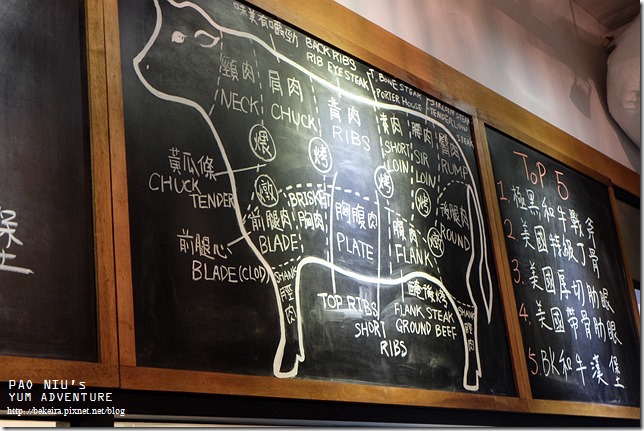 堡
味美有嚼勁
BACK RIBS
RIB EYE STEAK
T.BONE STEAK
PORTER HOUSE
頸肉
NECK
肩肉
CHUCK
背肉
RIBS
SHORT
LOIN
腰肉
SIR
LOIN
臀肉
RUMP
煨
烤
烤
烤
黃瓜條
CHUCK
TENDER
燉
前腿肉
BLADE
BRISKET
胸肉
胸腹肉
PLATE
腹肉
FLANK
後腿肉
ROUND
前腿心
BLADE(CLOD)
SHANK
脛肉
TOP RIBS
SHORT
RIBS
醃後烤
FLANK STEAK
GROUND BEEF
SHANK
脛肉
TOP 5
1.極黑和牛戰斧
2.美國特級丁骨
3.美國厚切肋眼
4.美國帶骨肋眼
5.BK和牛漢堡
PAO NIU'S
YUM ADVENTURE
http://bekeira.pixnet.net/blog